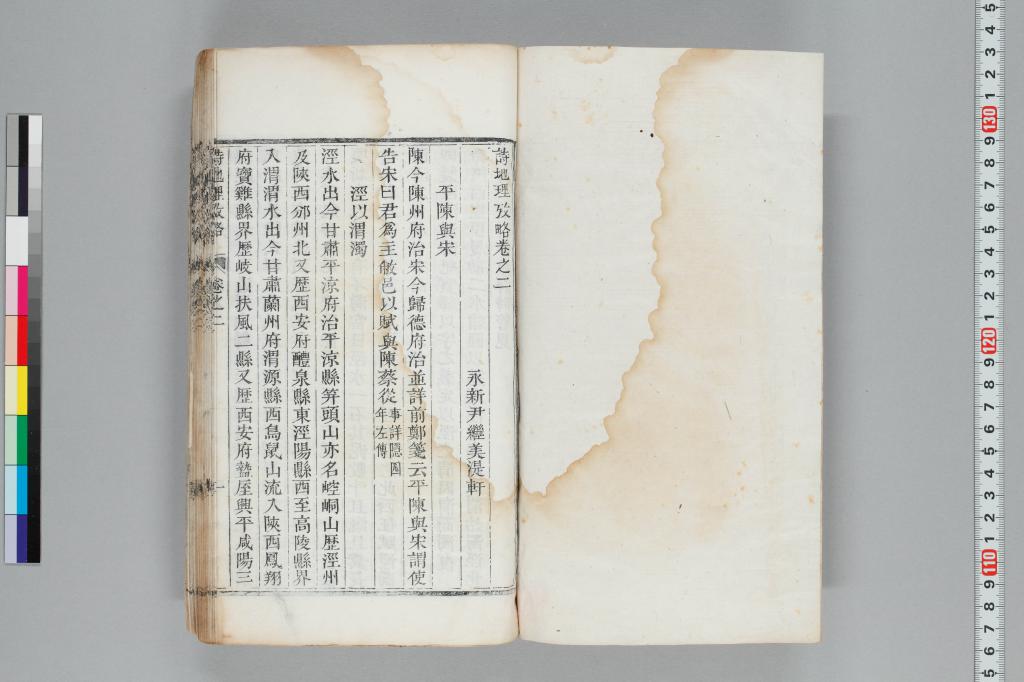 詩地理攷略卷之二
永新尹繼美湜軒
平陳與宋
陳今陳州府治宋今歸德府治並詳前鄭箋云平陳與宋謂使
告宋曰君為主敝邑以賦與陳蔡從事詳隱四年左傳
涇以渭濁
涇水出今甘肅平涼府治平涼縣筓頭山亦名崆峒山歷涇州
及陝西邠州北又歷西安府醴泉縣東涇陽縣西至高陵縣界
入渭渭水出今甘肅蘭州府渭源縣西鳥鼠山流入陝西鳳翔
府寶雞縣界歷岐山扶風二縣又歷西安府盩厔興平咸陽三
詩地理攷略
卷之二
一
5 4 3 2 1 130 9 8 7 6 5 4 3 2 1 120 9 8 7 6 5 4 3 2 1 110 9 8 7 6 5